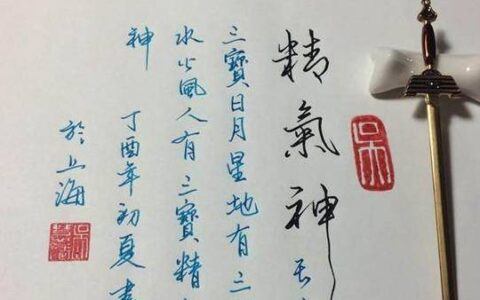 精氣神
三寶日月星地有三
水火風人有三寶精
神
丁酉年初夏書
於上海